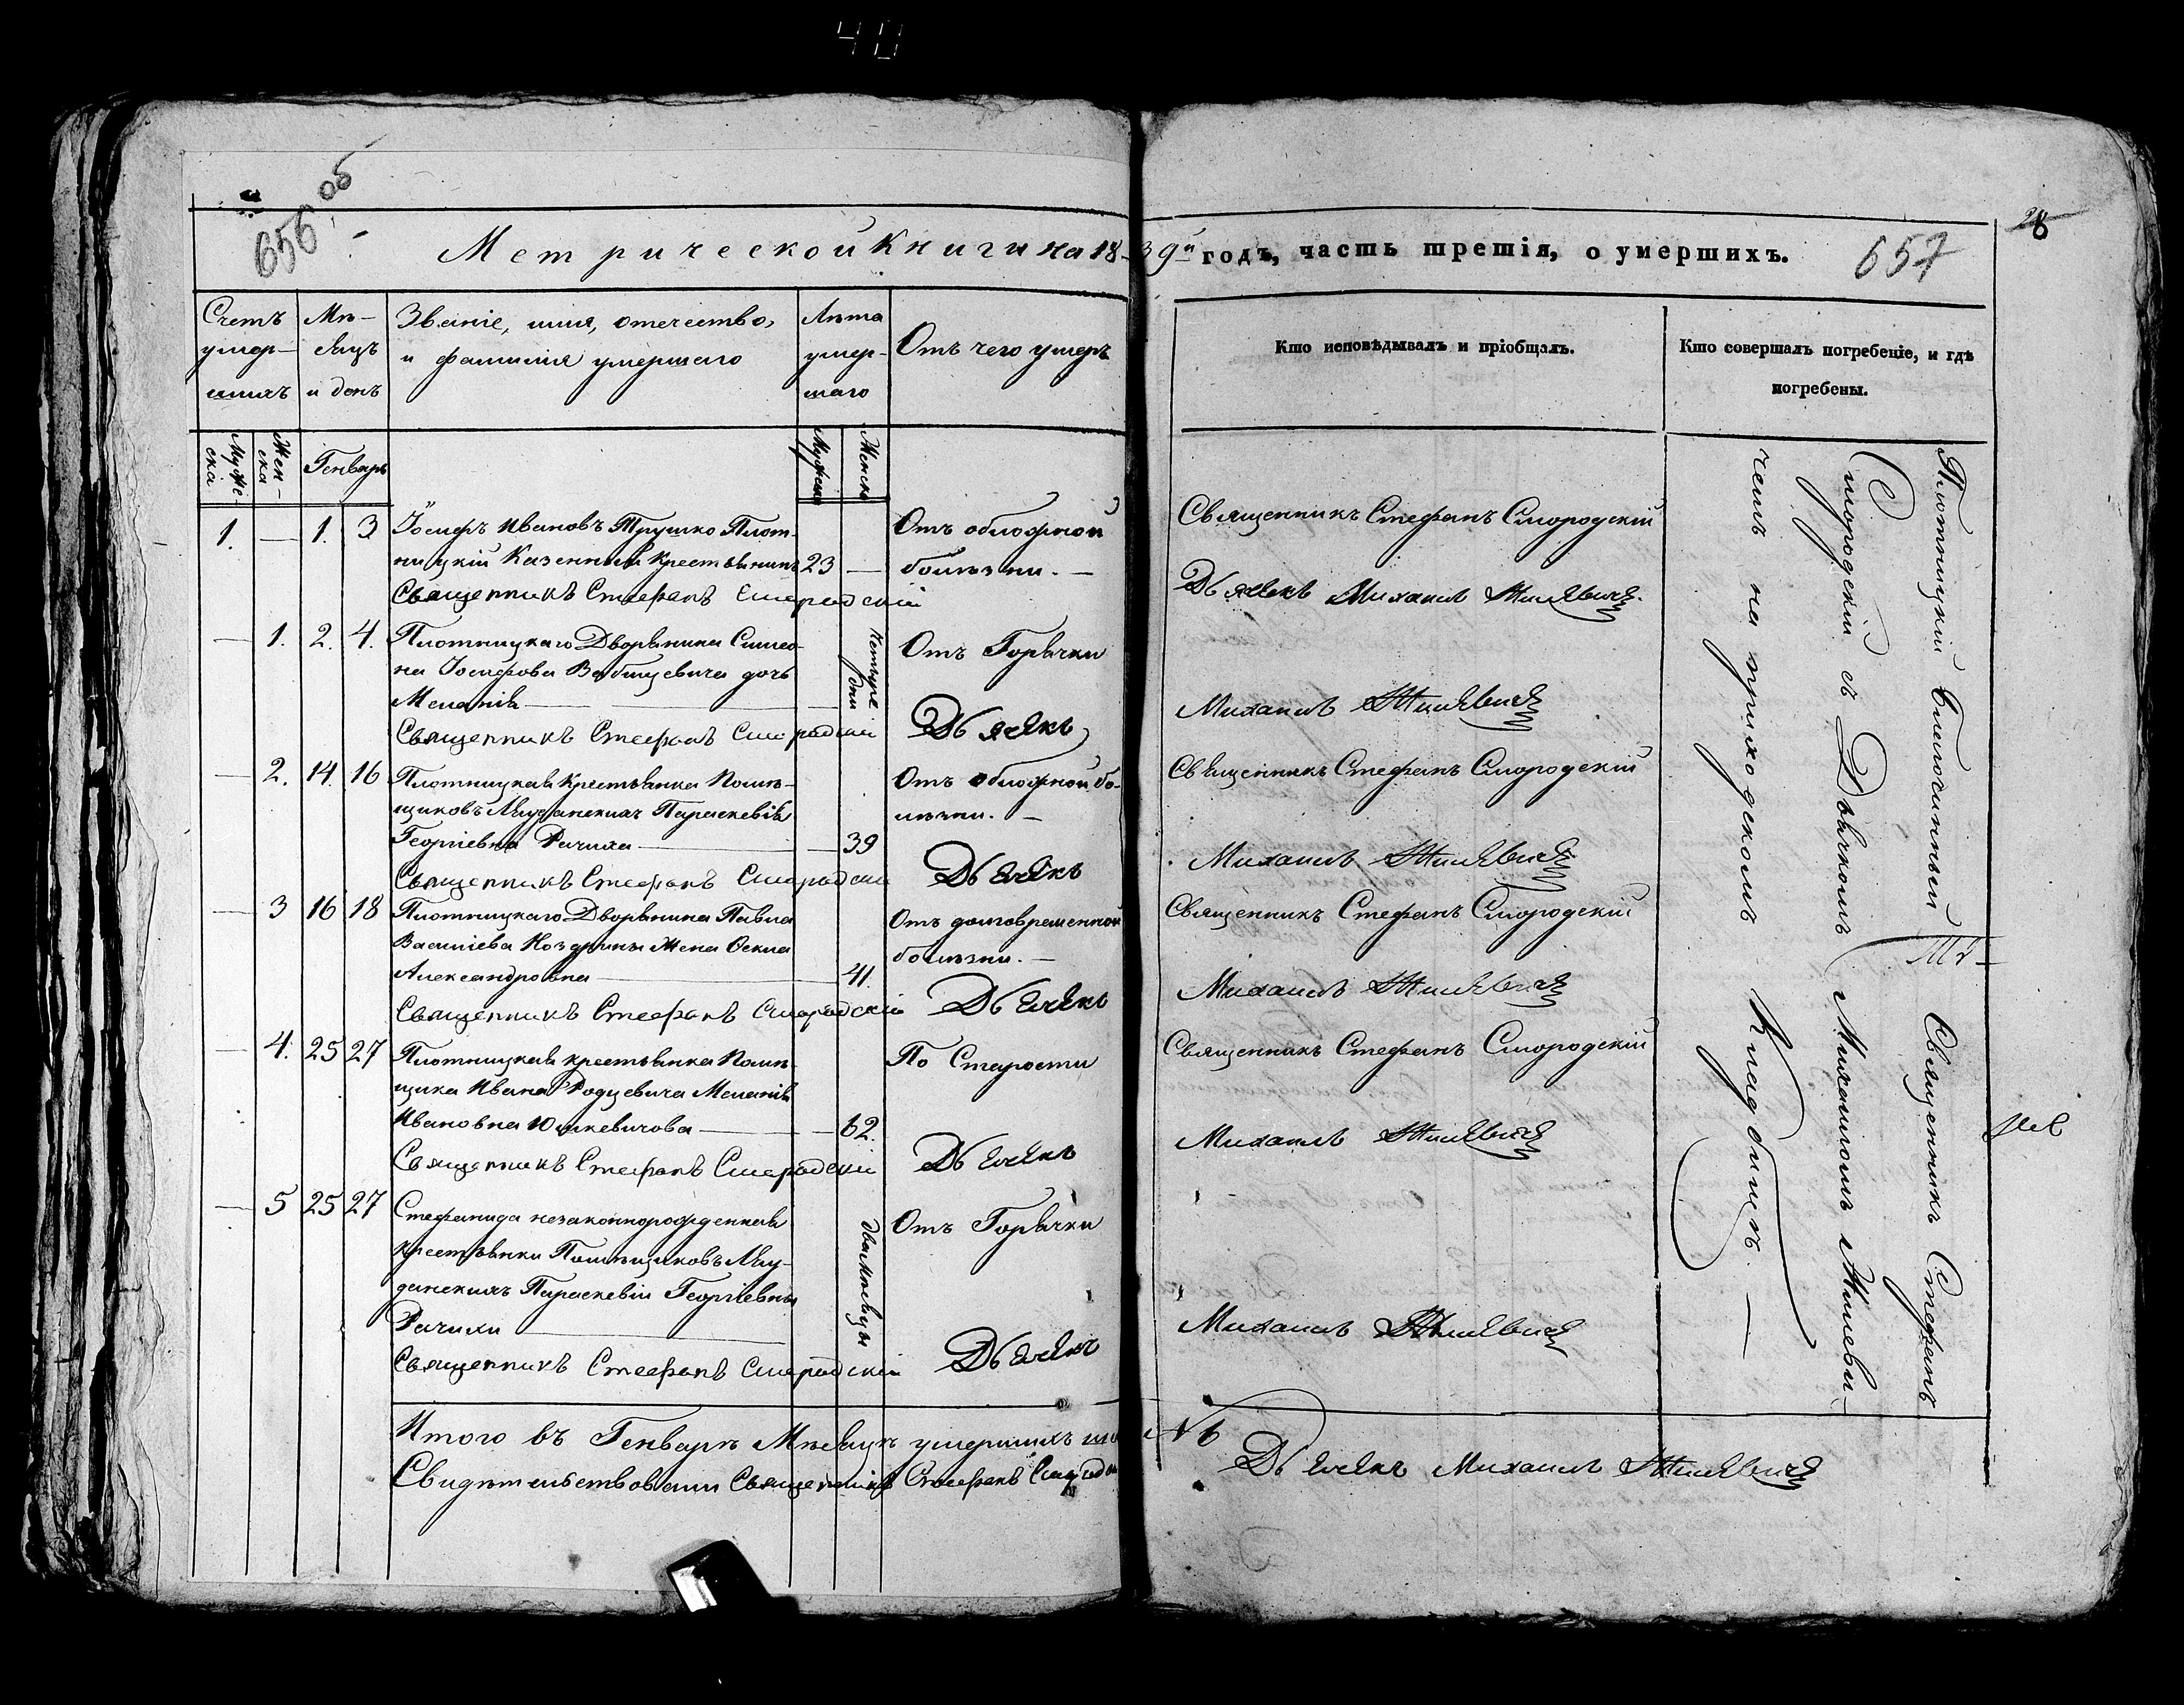 40
656 об
Метрической Книги на 1839й годъ, часть третія, о умершихъ.
657
28
Счетъ умер-шихъ
Мѣ-сяцъ и день
Званіе, имя, отечество, и фамилія умершаго
Лѣта умер-шаго
Отъ чего умеръ
Кто исповѣдывалъ и пріобщалъ.
Кто совершалъ погребеніе, и гдѣ
погребены.
Муже-ска
Жен-ска
Генварь
Мужска
Женска
1. — 1. 3
Іосифъ Ивановъ Трушко Плот-
ницкій Казенный Крестьянинъ 23 —
Священникъ Стефанъ Смородскій
Отъ обложной
болѣзни. —
Священникъ Стефанъ Смородскій
Дьячекъ Михаилъ Жилевичъ
— 1. 2. 4.
Плотницкаго Дворянина Симео-
на Іосифова Вабищевича дочь
Меланія —
четыре дни
Священникъ Стефанъ Смородскій
Отъ Горячки
Дьячекъ
Михаилъ Жилевичъ
— 2. 14. 16
Плотницкая крестьянка Помѣ-
щиковъ Мужанскихъ Параскевія
Георгіевна Рачиха — 39
Священникъ Стефанъ Смородскій
Отъ обложной бо-
лѣзни. —
Дьячекъ
Священникъ Стефанъ Смородскій
Михаилъ Жилевичъ
— 3 16 18
Плотницкаго Дворянина Павла
Василіева Ноздрины Жена Фекла
Александровна — 41.
Священникъ Стефанъ Смородскій
Отъ долговременной
болѣзни. —
Дьячекъ
Священникъ Стефанъ Смородскій
Михаилъ Жилевичъ
— 4. 25 27
Плотницкая крестьянка Помѣ-
щика Ивана Родцевича Меланія
Ивановна Юшкевичова — 62.
Священникъ Стефанъ Смородскій
По Старости
Дьячекъ
Священникъ Стефанъ Смородскій
Михаилъ Жилевичъ
— 5 25 27
Стефанида незаконнорожденная
крестьянки Помѣщиковъ
Параскевіи Георгіевны
Рачихи —
два мѣсяцы
Священникъ Стефанъ Смородскій
Отъ Горячки
Дьячекъ
Михаилъ Жилевичъ
Плотницкій Священникъ Стефанъ
Смородскій съ Дьячкомъ Михаиломъ Жилеви-
чемъ на приходскомъ Кладбищѣ —
Итого въ Генварѣ Мѣсяцѣ умершихъ № 6
Свидѣтельствовали Священникъ Стефанъ Смородскій
Дьячекъ Михаилъ Жилевичъ